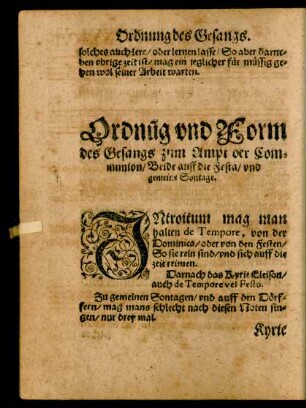 Ordnung des Gesangs.
solches auch lere/ oder lernen lasse/ So aber darne-
ben obrige zeit ist/ mag ein jeglicher für müssig ge-
hen wol seiner Arbeit warten.
Ordnūg vnd Form
des Gesangs zum Ampt der Com-
munion/ Beide auff die Festa/ vnd
gemeine Sontage.
INtroitum mag man
halten de Tempore, von der
Dominica/ oder von den Festen/
So sie rein sind/ vnd sich auff die
zeit reimen.
Darnach das Kyrie Eleison/
auch de Tempore vel Festo.
Zu gemeinen Sontagen/ vnd auff den Dörf-
fern/ mag mans schlecht nach diesen Noten sin-
gen/ nur drey mal.
Kyrie